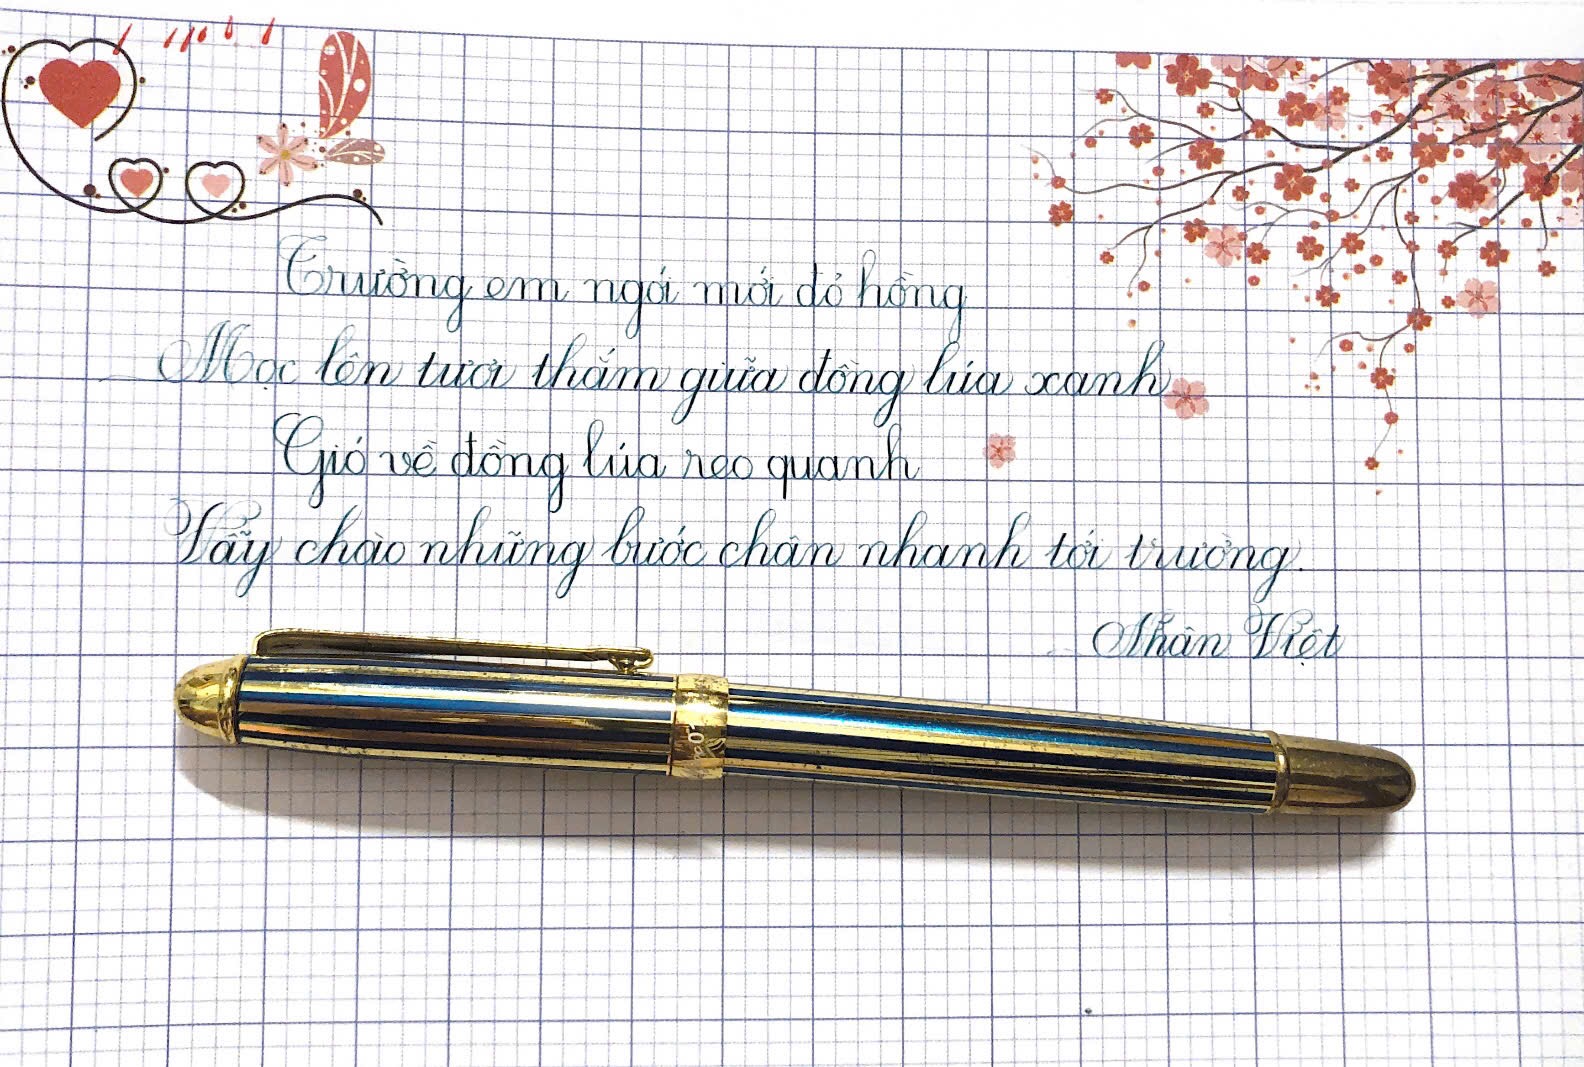 Trường em ngói mới đỏ hồng
Mọc lên tươi thắm giữa đồng lúa xanh
Gió về đồng lúa reo quanh
Vẫy chào những bước chân nhanh tới trường.
Nhân Việt